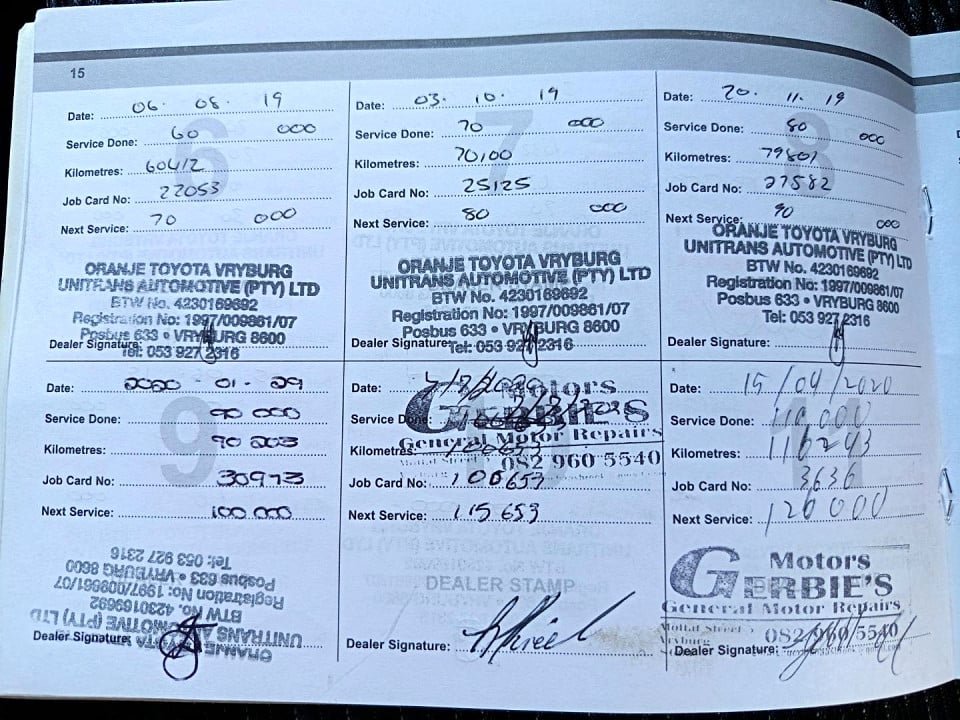 15
Date: 06. 08. 19
Service Done: 60 000
Kilometres: 60412
Job Card No: 22053
Next Service: 70 000
ORANJE TOYOTA VRYBURG
UNITRANS AUTOMOTIVE (PTY) LTD
BTW No. 4230169692
Registration No: 1997/009861/07
Posbus 633 • VRYBURG 8600
Dealer Signature: Tel: 053 927 2316
Date: 03. 10. 19
Service Done: 70 000
Kilometres: 70100
Job Card No: 25125
Next Service: 80 000
ORANJE TOYOTA VRYBURG
UNITRANS AUTOMOTIVE (PTY) LTD
BTW No. 4230169692
Registration No: 1997/009861/07
Posbus 633 • VRYBURG 8600
Dealer Signature: Tel: 053 927 2316
Date: 20. 11. 19
Service Done: 80 000
Kilometres: 79801
Job Card No: 27582
Next Service: 90 000
ORANJE TOYOTA VRYBURG
UNITRANS AUTOMOTIVE (PTY) LTD
BTW No. 4230169692
Registration No: 1997/009861/07
Posbus 633 • VRYBURG 8600
Tel: 053 927 2316
Dealer Signature:
9
Date: 2020 - 01 - 29
Service Done: 90 000
Kilometres: 90 203
Job Card No: 30973
Next Service: 100 000
ORANJE TOYOTA VRYBURG
UNITRANS AUTOMOTIVE (PTY) LTD
BTW No. 4230169692
Registration No: 1997/009861/07
Posbus 633 • VRYBURG 8600
Tel: 053 927 2316
Dealer Signature:
Date:
Motors
GERBIE'S
Service Done:
General Motor Repairs
Kilometres:
082 960 5540
Job Card No: 100653
Next Service: 115 653
DEALER STAMP
Dealer Signature:
11
Date: 15/04/2020
Service Done: 110 000
Kilometres: 110243
Job Card No: 3636
Next Service: 120 000
Motors
GERBIE'S
General Motor Repairs
Moffat Street
Vryburg 082 960 5540
Dealer Signature: